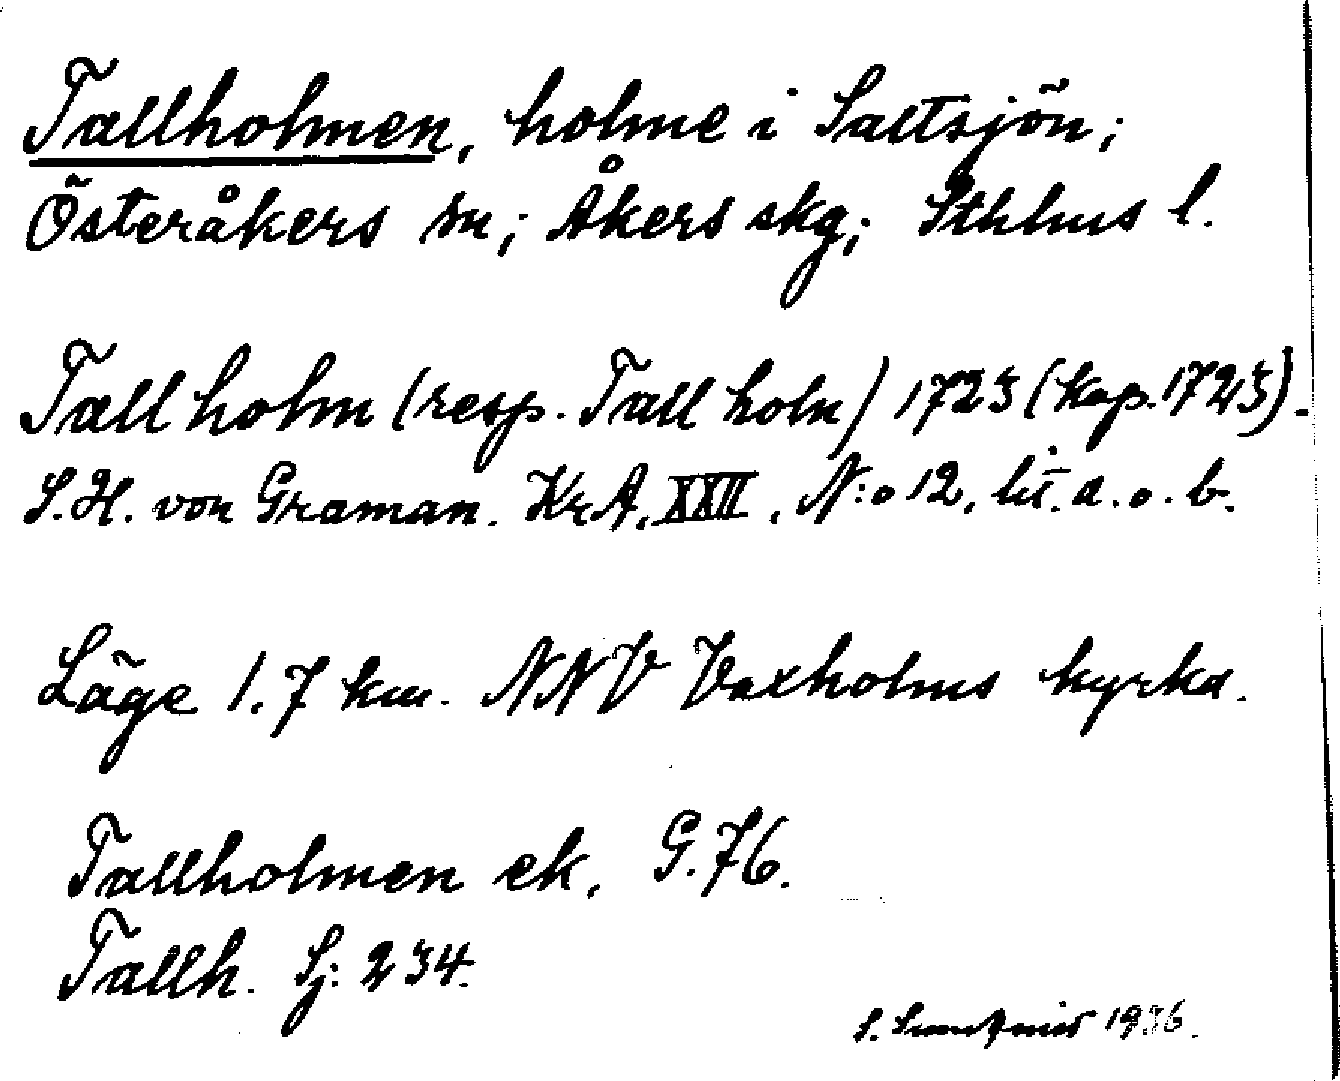 Tallholmen, holme i Saltsjön;
Österåkers sn; Åkers skg; Sthlms l.
Tall holm (resp. Tall holm) 1723 (kop. 1723).
S.H. von Graman. KrA, XXII, N:o 12, lit. a. o. b.
Läge 1.7 km. NNV Vaxholms kyrka.
Tallholmen ek. G.76.
Tallh. Sj: 234.
S. 1936.